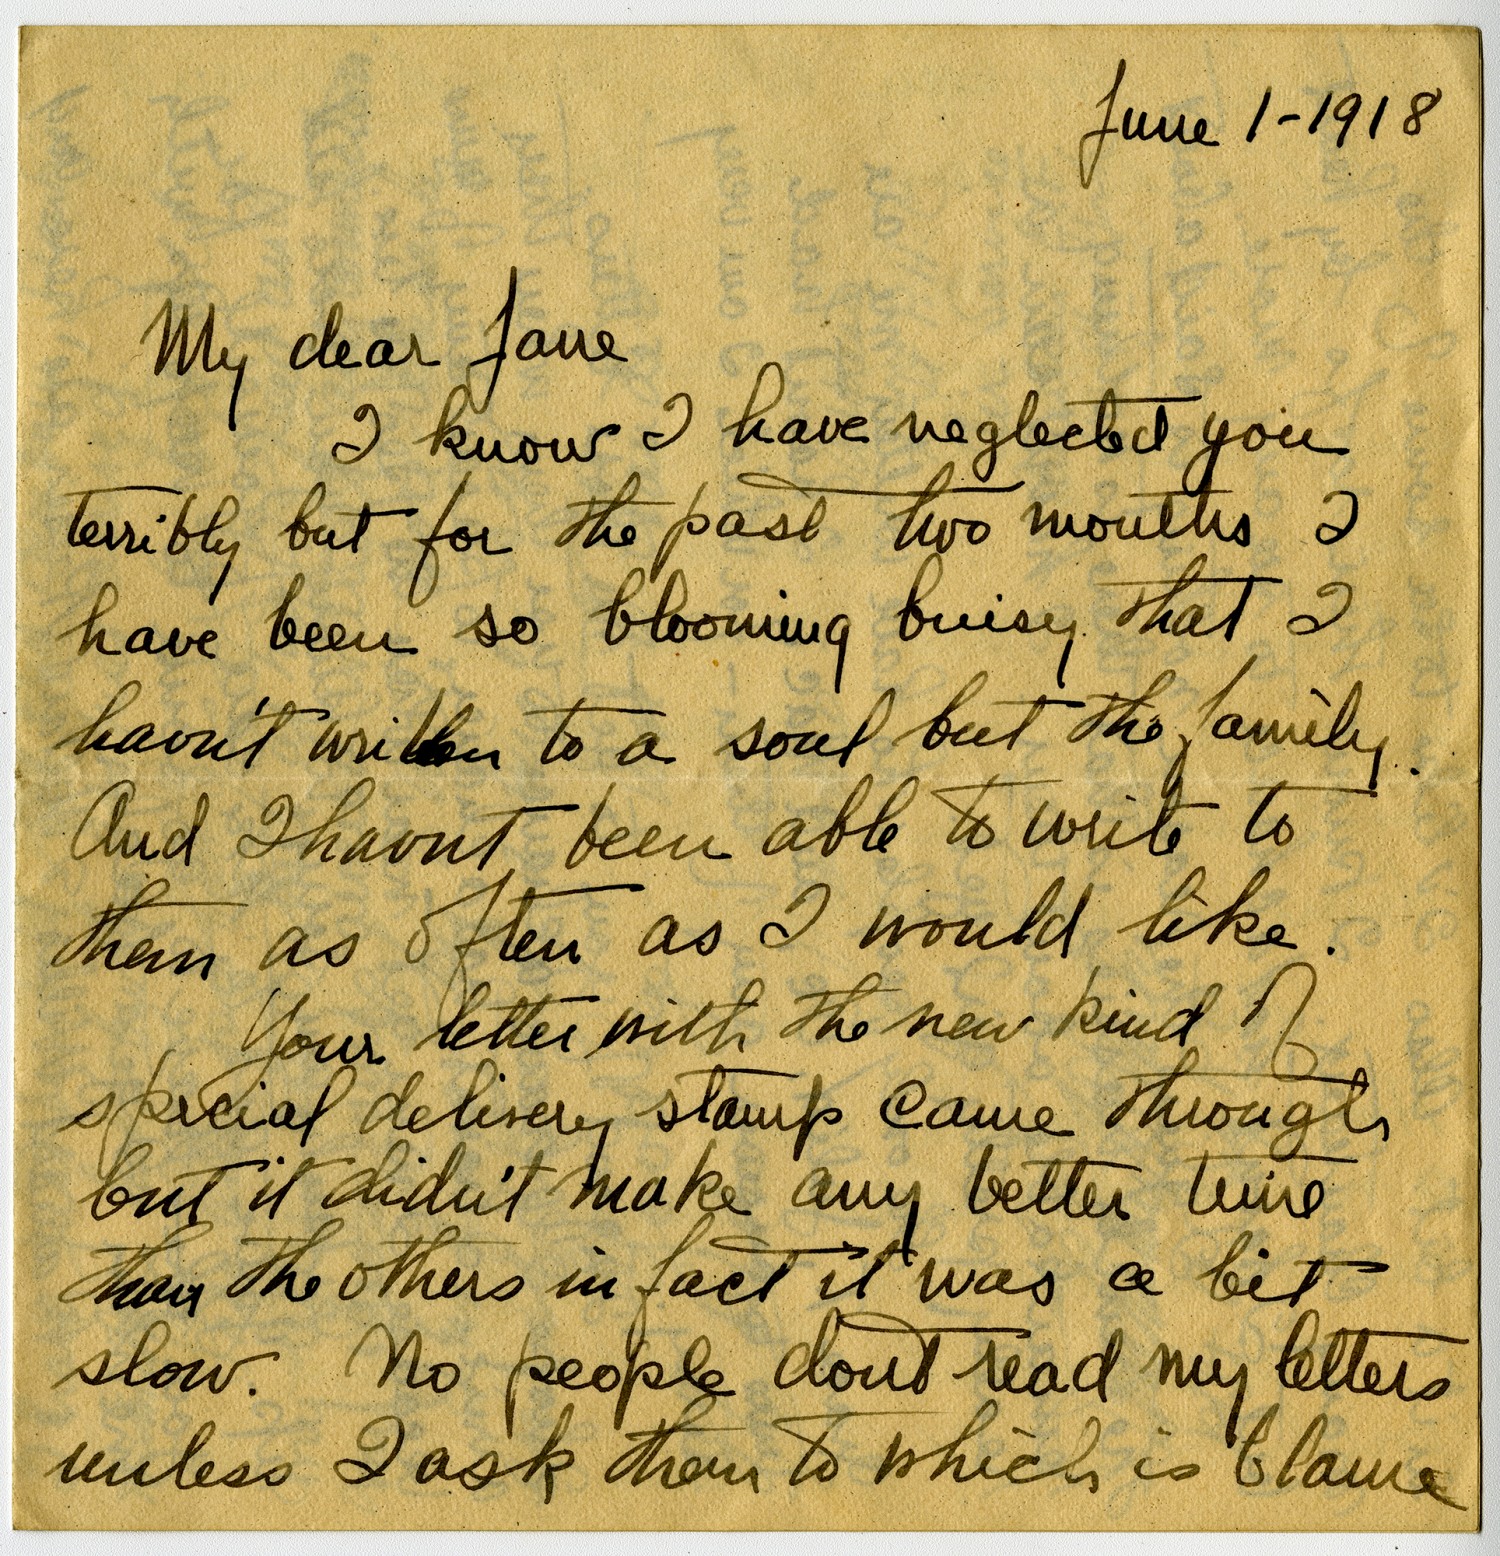 June 1-1918
My dear Jane
I know I have neglected you
terribly but for the past two months I
have been so blooming buisy that I
havn't written to a soul but the family.
And I havnt been able to write to
them as often as I would like.
Your letter with the new kind of
special delivery stamp came through
but it didn't make any better time
than the others in fact it was a bit
slow. No people dont read my letters
unless I ask them to which is blame